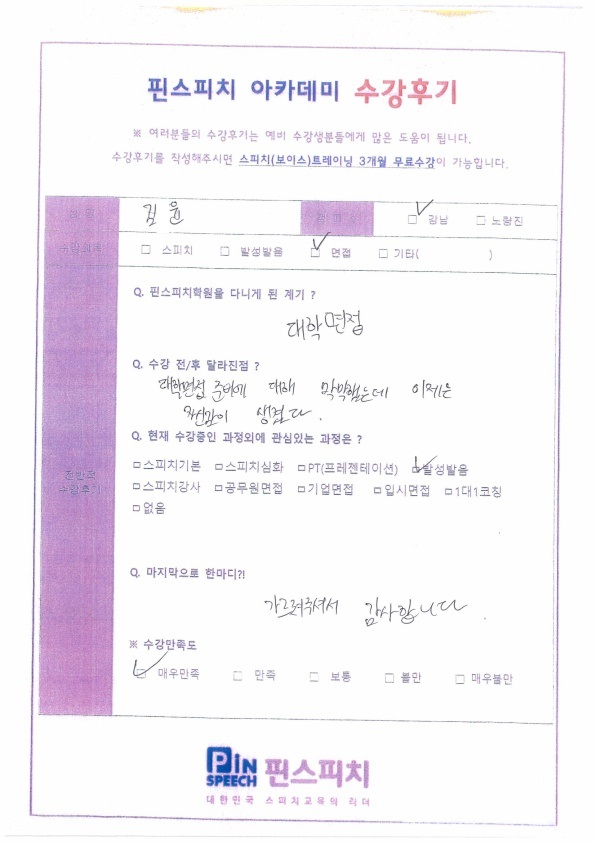 핀스피치 아카데미 수강후기
※ 여러분들의 수강후기는 예비 수강생분들에게 많은 도움이 됩니다.
수강후기를 작성해주시면 스피치(보이스)트레이닝 3개월 무료수강이 가능합니다.
성 명 김윤 □ 강남 □ 노량진
수강과목 □ 스피치 □ 발성발음 □ 면접 □ 기타( )
Q. 핀스피치학원을 다니게 된 계기 ?
대학면접
Q. 수강 전/후 달라진점 ?
대학면접 준비에 대해 막막했는데 이제는
자신감이 생겼다.
Q. 현재 수강중인 과정외에 관심있는 과정은 ?
□스피치기본 □스피치심화 □PT(프레젠테이션) □발성발음
□스피치강사 □공무원면접 □기업면접 □입시면접 □1대1코칭
□없음
전반적
수강후기
Q. 마지막으로 한마디?!
가르쳐주셔서 감사합니다.
※ 수강만족도
□ 매우만족 □ 만족 □ 보통 □ 불만 □ 매우불만
PiN SPEECH 핀스피치
대한민국 스피치교육의 리더